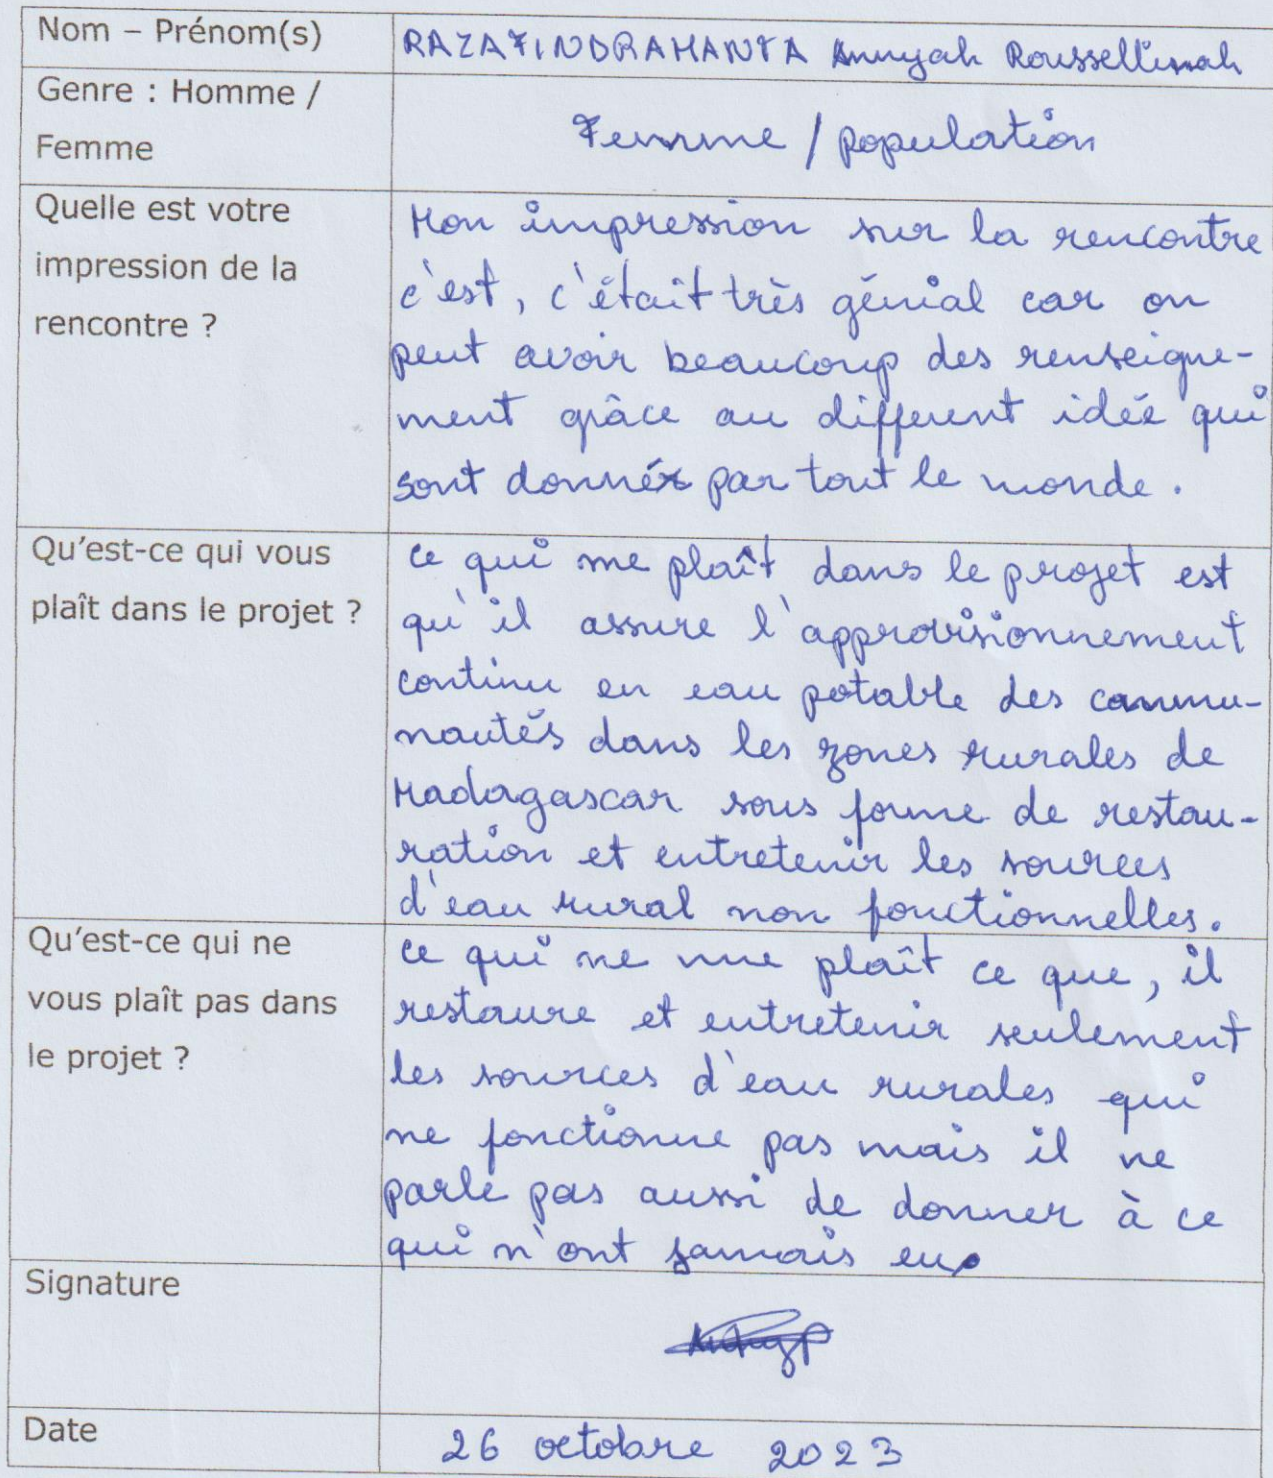 Nom – Prénom(s)
RAZAFINDRAMANTA Annyah Roussellinah
Genre : Homme /
Femme
Femme / population
Quelle est votre
impression de la
rencontre ?
Mon impression sur la rencontre
c'est, c'était très génial car on
peut avoir beaucoup des renseigne-
ment grâce au different idée qui
sont donnés par tout le monde.
Qu'est-ce qui vous
plaît dans le projet ?
ce qui me plaît dans le projet est
qu'il assure l'approvisionnement
continu en eau potable des commu-
nautés dans les zones rurales de
Madagascar sous forme de restau-
ration et entretenir les sources
d'eau rural non fonctionnelles.
Qu'est-ce qui ne
vous plaît pas dans
le projet ?
ce qui ne me plaît ce que, il
restaure et entretenir seulement
les sources d'eau rurales qui
ne fonctionne pas mais il ne
parle pas aussi de donner à ce
qui n'ont jamais eu.
Signature
Date
26 octobre 2023